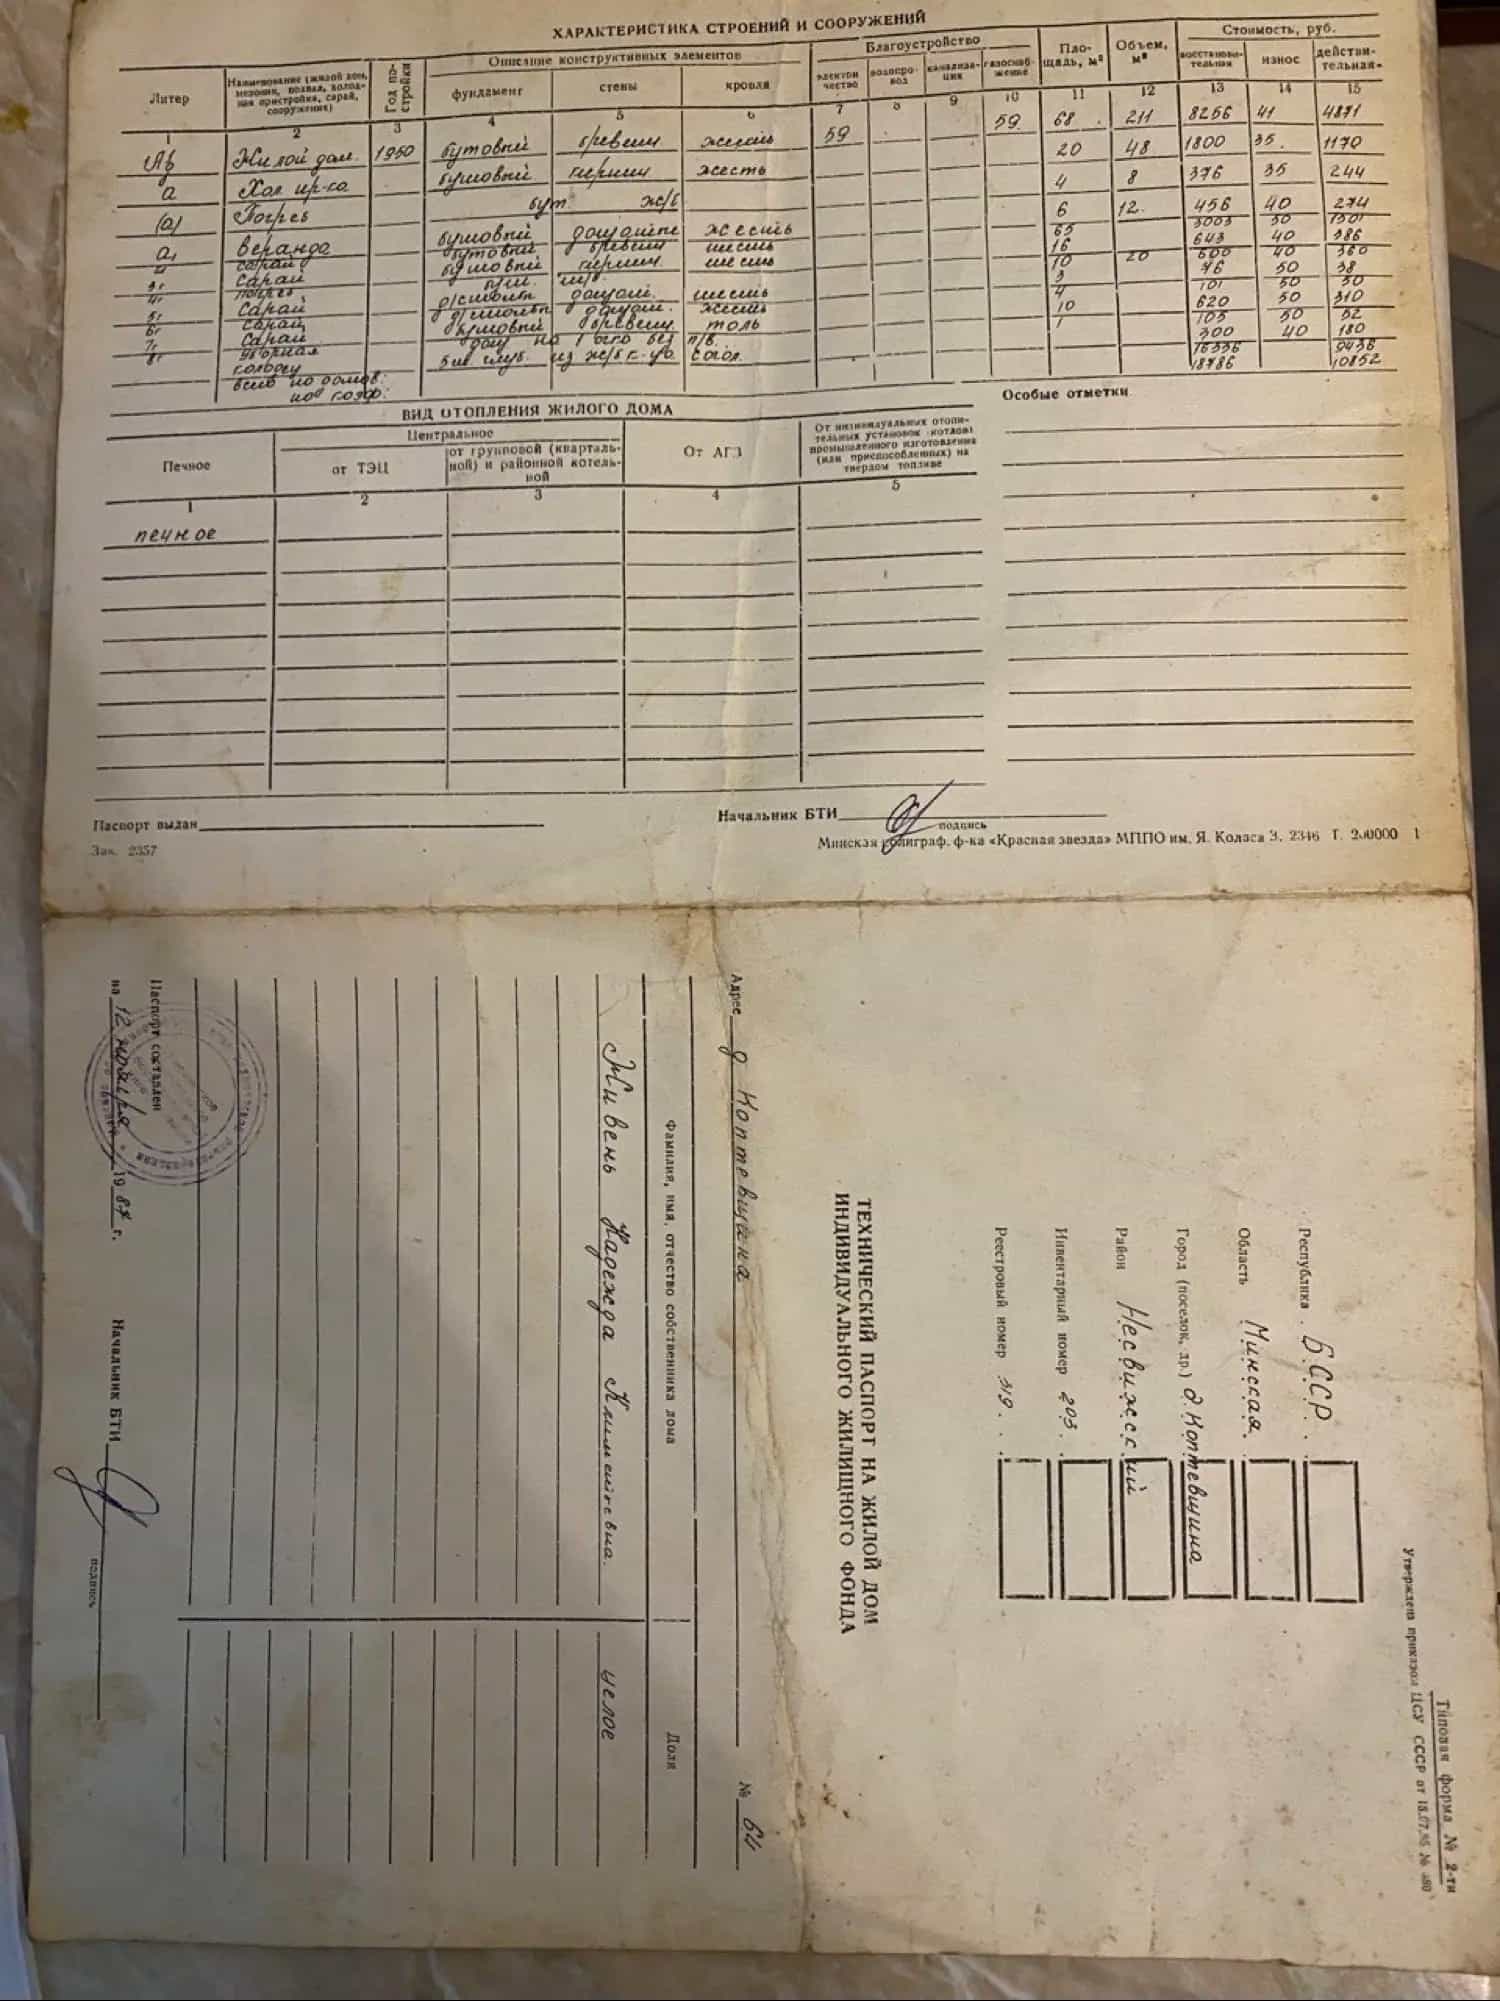 ХАРАКТЕРИСТИКА СТРОЕНИЙ И СООРУЖЕНИЙ
Литер
Наименование (жилой дом, мезонин, подвал, холодная пристройка, сарай, сооружения)
Год постройки
Описание конструктивных элементов
фундамент стены кровля
Благоустройство
электричество водопровод канализация газоснабжение
Площадь, м²
Объем, м³
Стоимость, руб.
восстановительная износ действительная
1 2 3 4 5 6 7 8 9 10 11 12 13 14 15
Жилой дом 1950 бутовый бревен жесть 59 59 68 211 8256 41 4871
а Хол. пр-ка бутовый жесть 20 48 1800 35 1170
(а) Погреб бут. ж/б 4 8 376 35 244
а₁ Веранда бутовый жесть 6 12 456 40 274
Сарай бутовый бревен жесть 65 3003 50 1501
Сарай бутовый жесть 16 643 40 386
Погреб 10 20 600 40 360
Сарай жесть 3 76 50 38
Сарай жесть 4 101 50 50
Сарай бутовый бревен. толь 10 620 50 310
Уборная 1 103 50 52
колодец 300 40 180
всего по домов: 16336 9436
18786 10852
ВИД ОТОПЛЕНИЯ ЖИЛОГО ДОМА
Печное
Центральное
от ТЭЦ
от групповой (квартальной) и районной котельной
От АГЗ
От индивидуальных отопительных установок (котлов) промышленного изготовления (или приспособленных) на твердом топливе
1 2 3 4 5
печное
Особые отметки
Паспорт выдан
Начальник БТИ
подпись
Зак. 2357
Минская полиграф. ф-ка «Красная звезда» МППО им. Я. Коласа З. 2346 Т. 200000 1
Типовая форма № 2-ти
Утверждена приказом ЦСУ СССР от 18.07.85 № 380
Республика БССР
Область Минская
Город (поселок, др.) д. Коптевщина
Район Несвижский
Инвентарный номер 203
Реестровый номер 319
ТЕХНИЧЕСКИЙ ПАСПОРТ НА ЖИЛОЙ ДОМ
ИНДИВИДУАЛЬНОГО ЖИЛИЩНОГО ФОНДА
Адрес д Коптевщина № 64
Фамилия, имя, отчество собственника дома
Доля
Живень Надежда целое
Паспорт составлен
на 12 ноября 1987 г.
Начальник БТИ
подпись